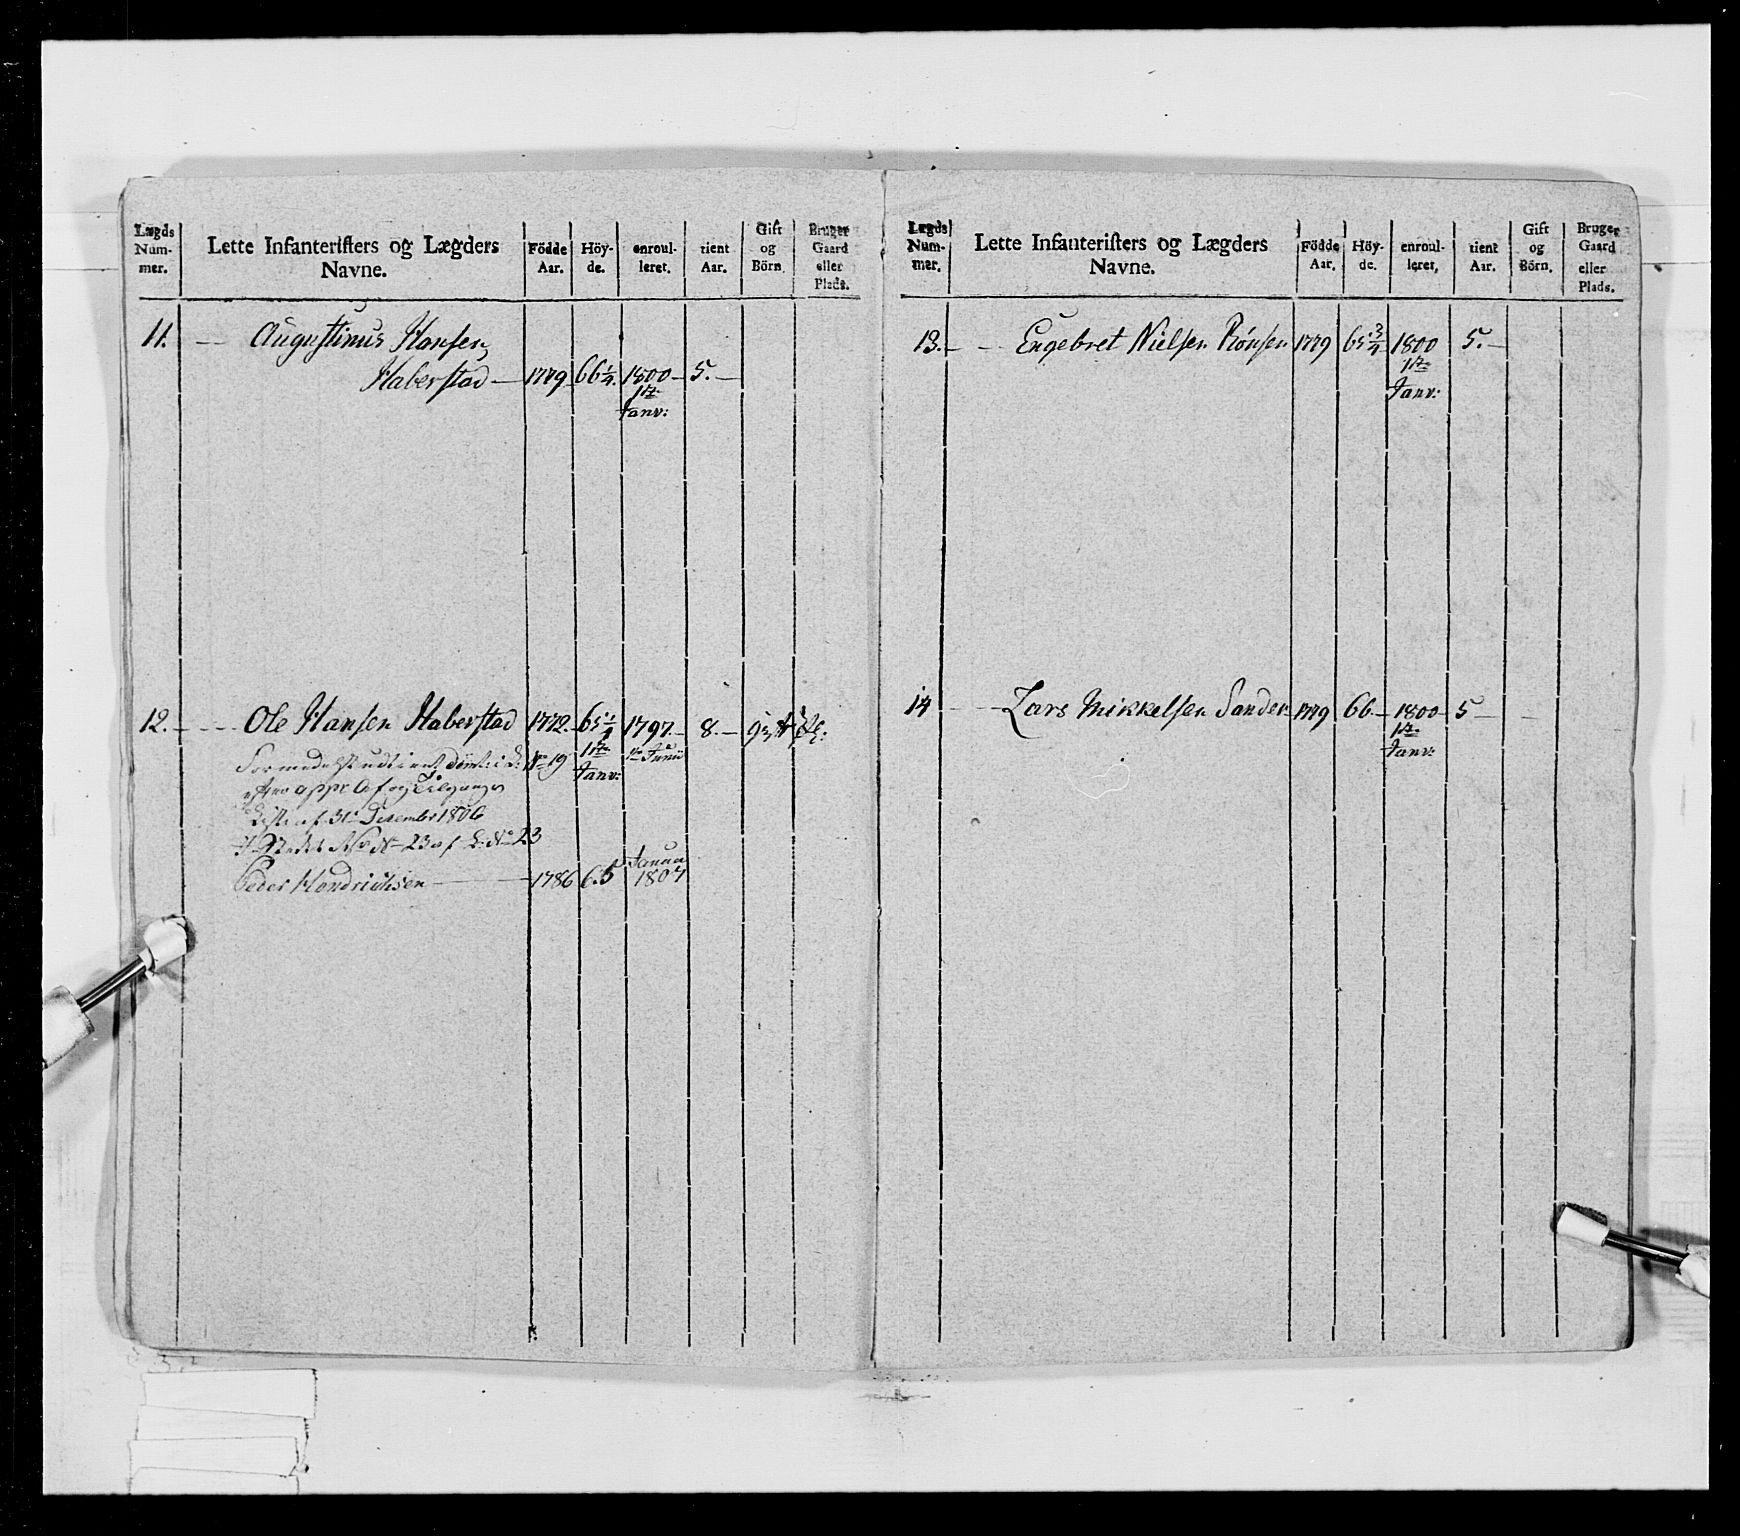 Lægds Num- mer. Lette Infanterifters og Lægders Navne. Födde Aar. Höy- de. enroul- leret. tient Aar. Gift og Börn. Bruger Gaard eller Plads.
11. — Augustinus Hansen,
Haberstad — 1779 66 1/4. 1800 — 5. —
1te
Janv:
12. — Ole Hansen Haberstad 1772. 65 1/4 1797. 8. —
Formedelst udtient
1te Janv:
efter appr: Af og Tilgangs
Liste af 31te Desembr 1806
I Stedet No 23 af L: No 23
Januar
Peder Hendrichsen — 1786 65 1807
Lægds Num- mer. Lette Infanterifters og Lægders Navne. Födde Aar. Höy- de. enroul- leret. tient Aar. Gift og Börn. Bruger Gaard eller Plads.
13. — Engebret Nielsen Rönsen 1779 65 3/4 1800 5. —
1te
Janv:
14 — Lars Mikkelsen Sanden 1779 66 — 1800 5 —
1te
Janv: